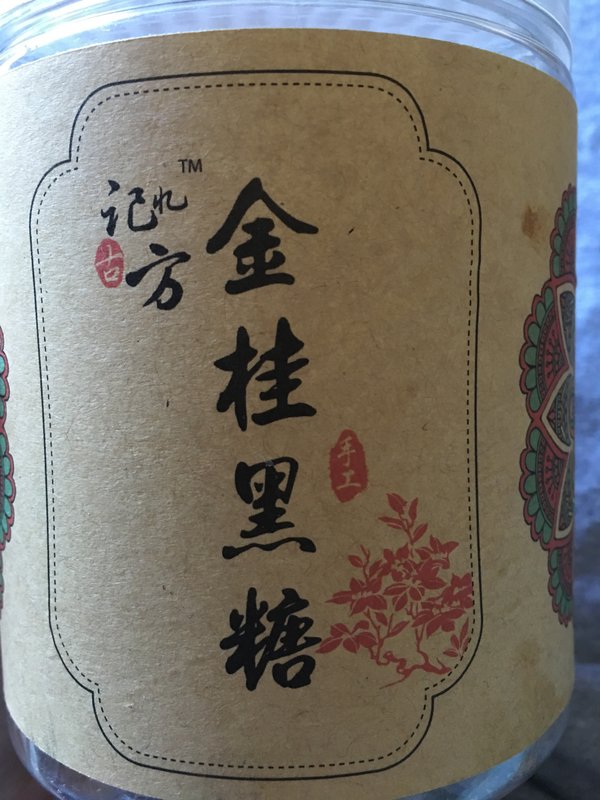 记忆™
古方
金桂黑糖
手工